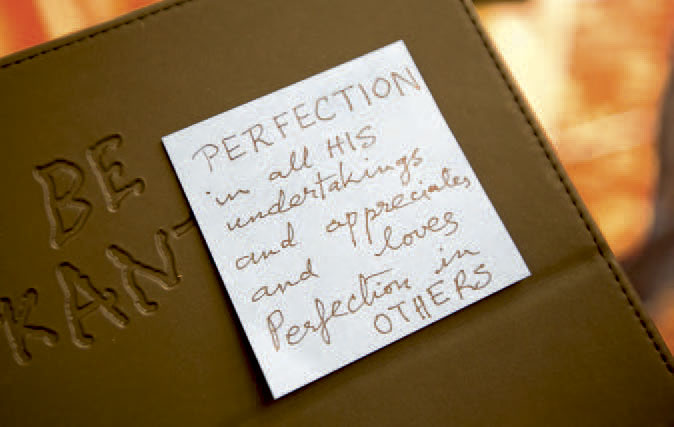 BE
KANT
PERFECTION
in all HIS
undertakings
and appreciates
and loves
Perfection in
OTHERS